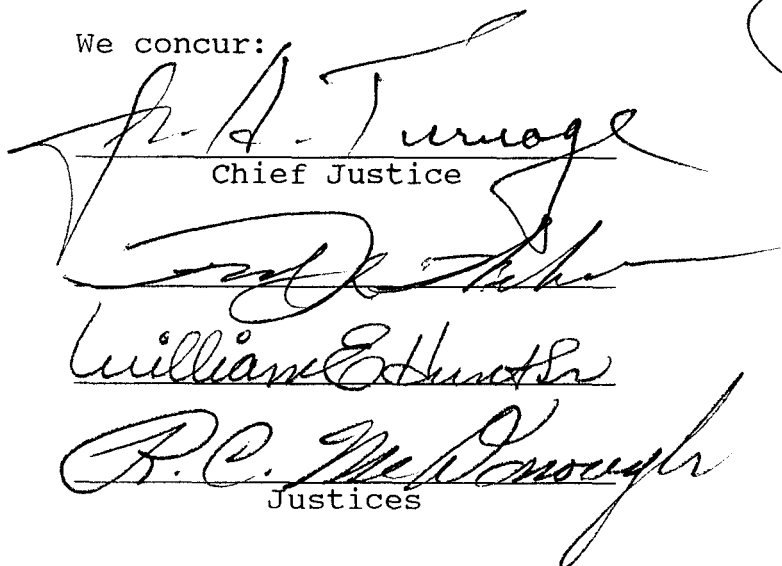 We concur:
J. A. Turnage
Chief Justice
William E Hunt Sr
R. C. McDonough
Justices